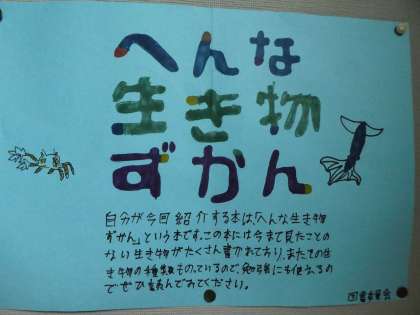 へんな
生き物
ずかん
自分が今回紹介する本は、「へんな生き物
ずかん」という本です。この本には今まで見たことの
ない生き物がたくさん書かれており、またその生
き物の種類ものっているので、勉強にも使えるの
でぜひ読んでみてください。
図書委員会